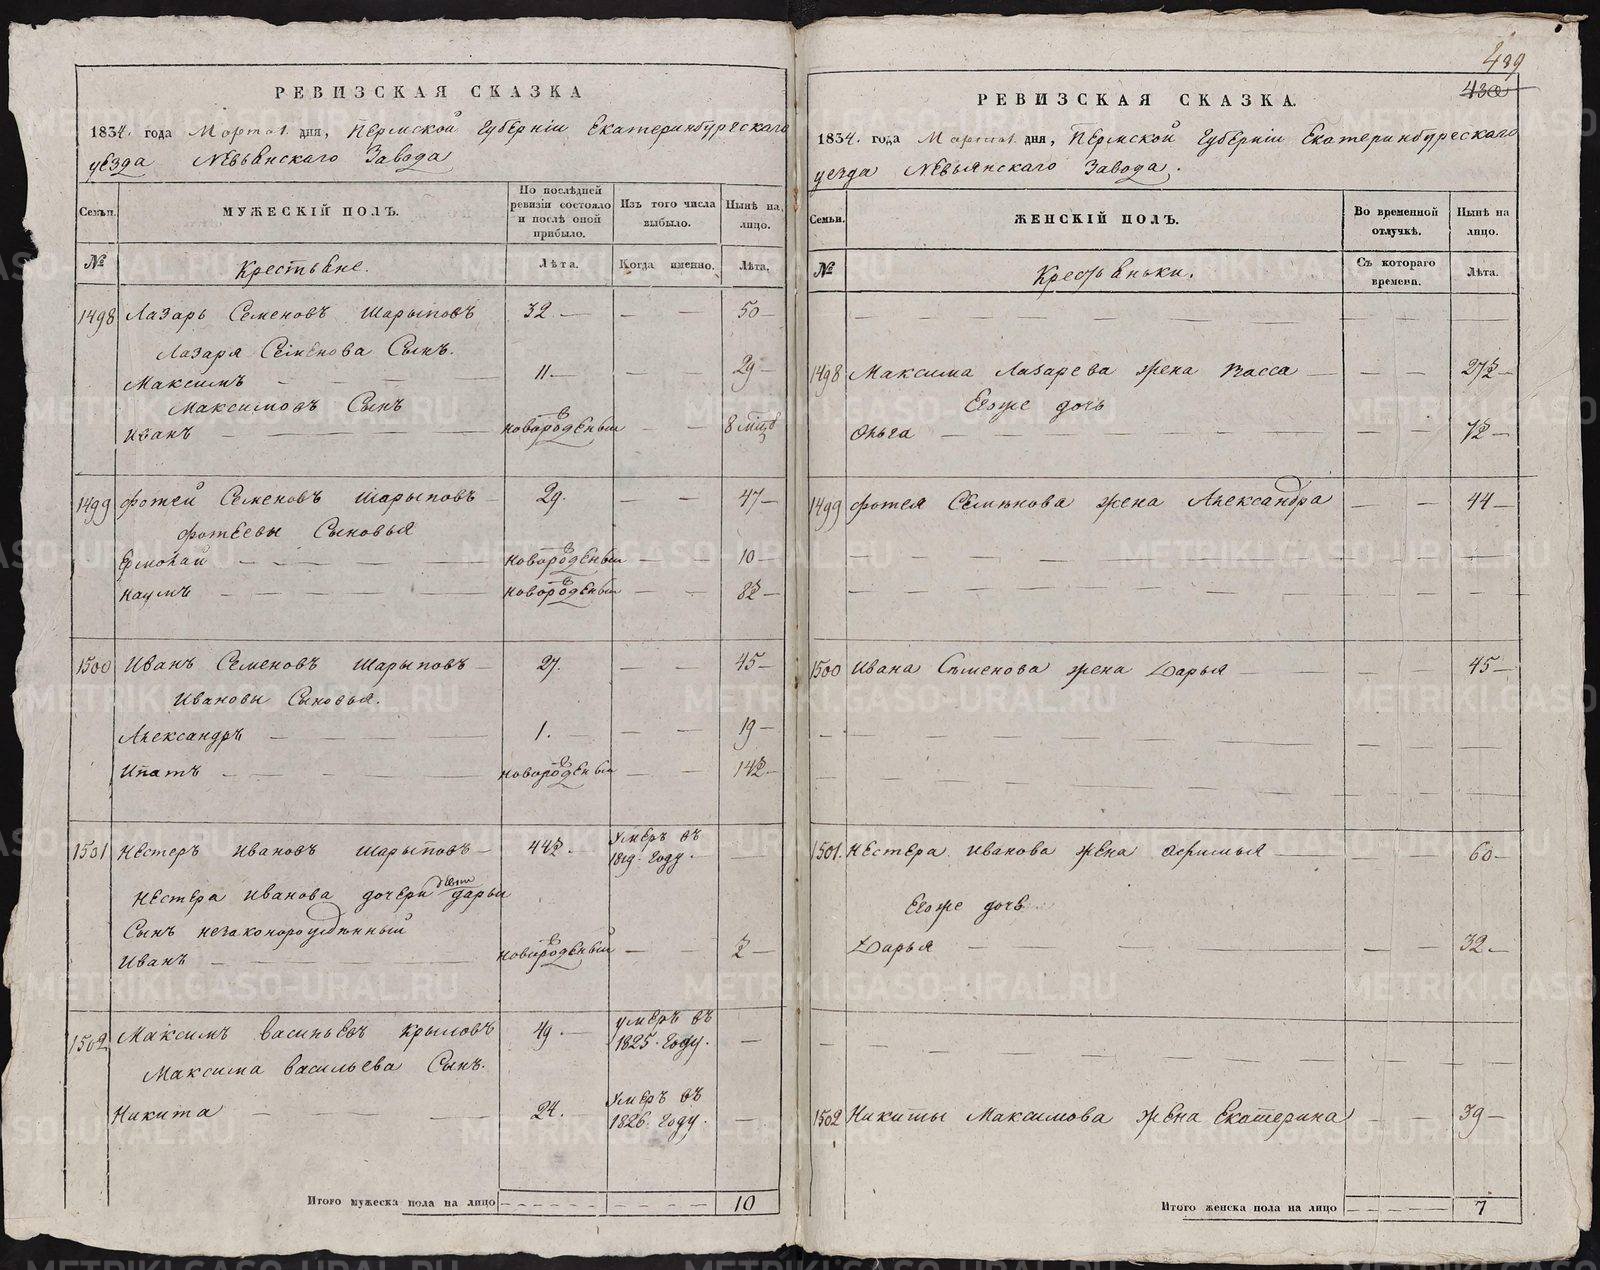 РЕВИЗСКАЯ СКАЗКА
1834. года Марта 1. дня, Пермской Губернiи Екатеринбургскаго
уезда Невьянскаго Завода
Семьи. МУЖЕСКIЙ ПОЛЪ. По послѣдней ревизiи состояло и послѣ оной прибыло. Изъ того числа выбыло. Нынѣ на лицо.
№ Крестьяне. Лѣта. Когда именно. Лѣта.
1498 Лазарь Семеновъ Шарыповъ 32. 50
Лазаря Семенова Сынъ.
Максимъ 11 29
Максимовъ Сынъ
Иванъ новорожденный 8
1499 Фотей Семеновъ Шарыповъ 29. 47
Фотеевы Сыновья
Ермолай новорожденный 10
Наумъ новорожденный 8½
1500 Иванъ Семеновъ Шарыповъ 27. 45
Ивановы Сыновья.
Александръ 1. 19
Ипатъ новорожденный 14½
1501 Нестеръ Ивановъ Шарыповъ 44½. Умеръ въ 1819. Году.
Нестера Иванова дочери Дарьи
Сынъ незаконорожденный
Иванъ новорожденный ½
1502 Максимъ Васильевъ Крыловъ 49. умеръ въ 1825. Году.
Максима Васильева Сынъ.
Никита 24. Умеръ въ 1826. Году.
Итого мужеска пола на лицо 10
439
430
РЕВИЗСКАЯ СКАЗКА.
1834. года Марта 1. дня, Пермской Губернiи Екатеринбургскаго
уезда Невьянскаго Завода.
Семьи. ЖЕНСКIЙ ПОЛЪ. Во временной отлучкѣ. Нынѣ на лицо.
№ Крестьянки. Съ котораго времени. Лѣта.
1498 Максима Лазарева жена Васса 27½
Егоже дочь
Ольга 7½
1499 Фотея Семенова жена Александра 44
1500 Ивана Семенова жена Дарья 45
1501. Нестера Иванова жена Афимья 60
Егоже дочь
Дарья 32
1502 Никиты Максимова жена Екатерина 39
Итого женска пола на лицо 7
METRIKI.GASO-URAL.RU